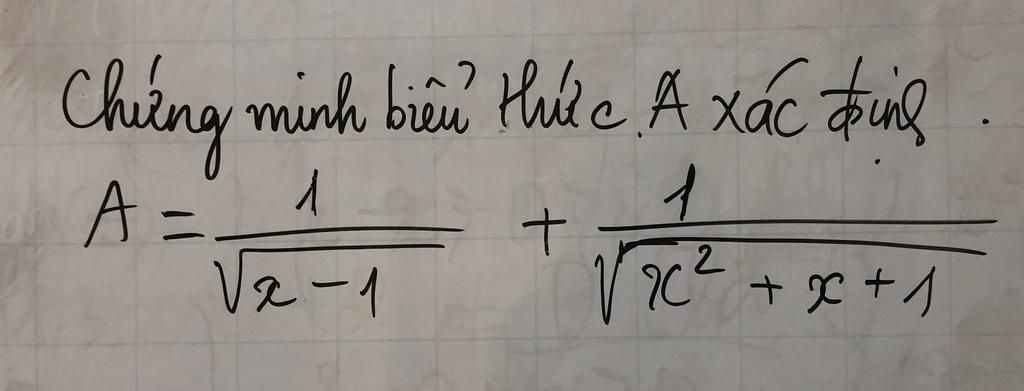 Chứng minh biểu thức A xác định.
A = \frac{1}{\sqrt{x-1}} + \frac{1}{\sqrt{x^2+x+1}}